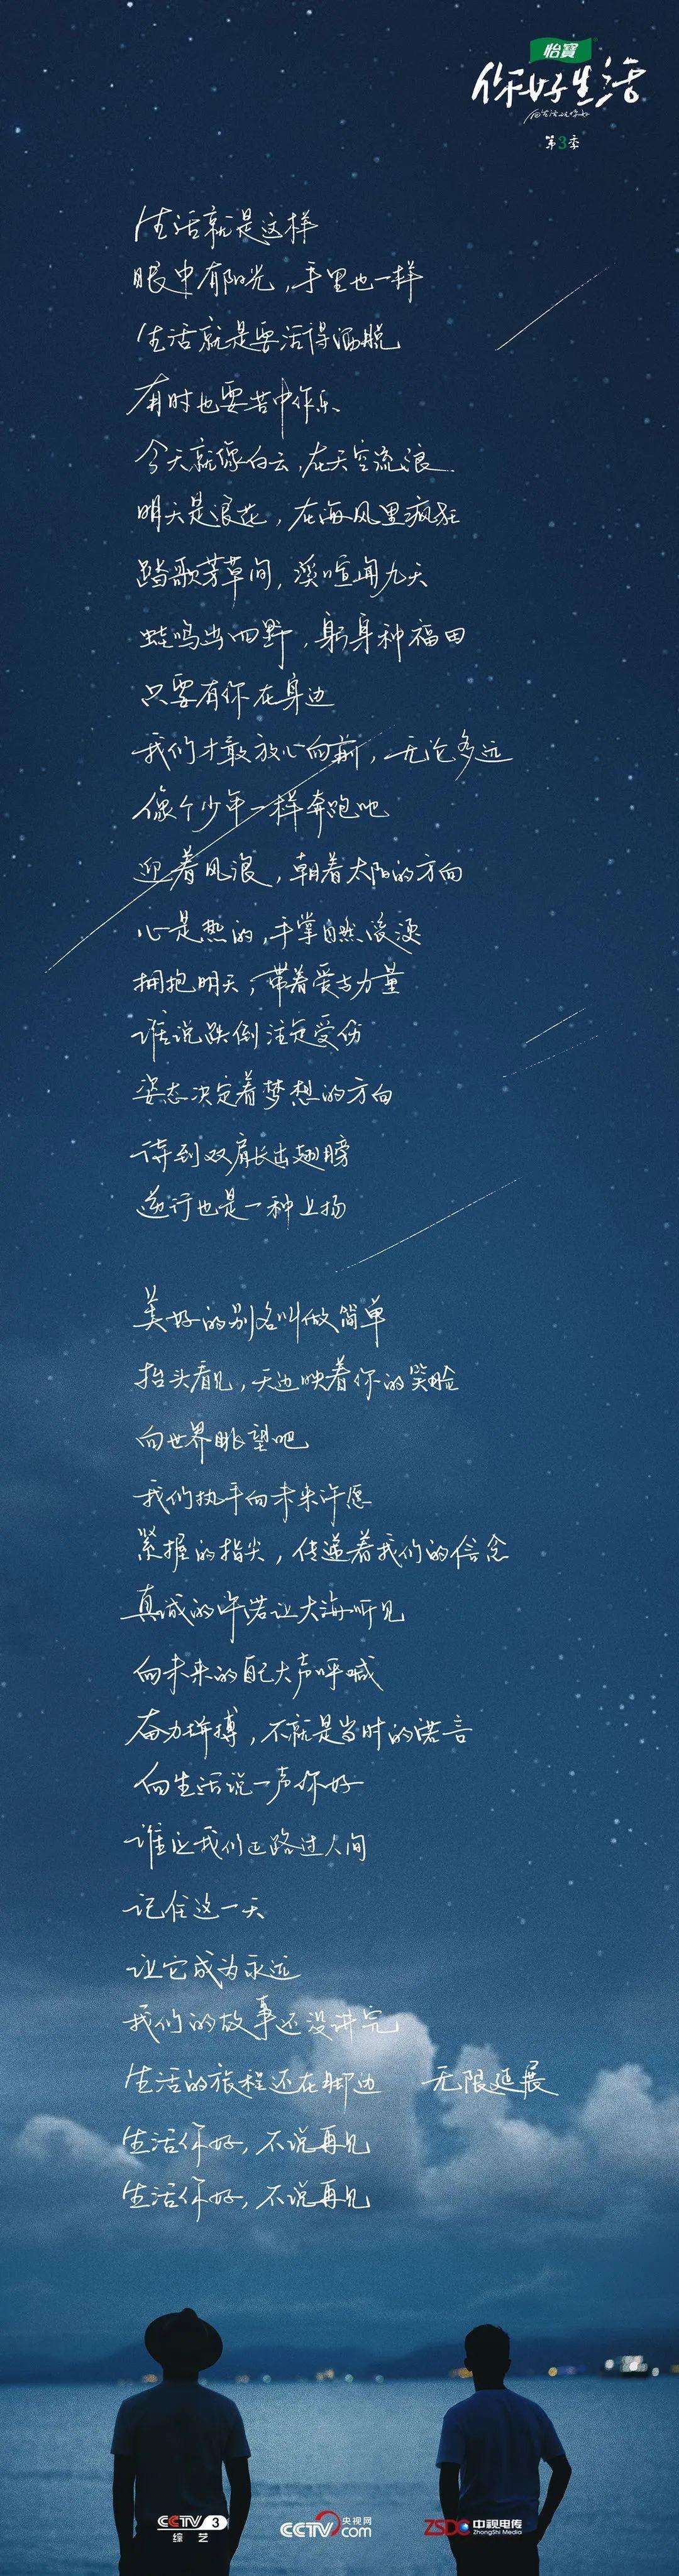 怡寶
你好生活
向生活说你好
第3季
生活就是这样
眼中有阳光，手里也一样
生活就是要活得洒脱
有时也要苦中作乐
今天就像白云，在天空流浪
明天是浪花，在海风里疯狂
踏歌芳草间，溪喧闻九天
蛙鸣出四野，躬身种福田
只要有你在身边
我们才敢放心向前，无论多远
像个少年一样奔跑吧
迎着风浪，朝着太阳的方向
心是热的，手掌自然滚烫
拥抱明天，带着爱与力量
谁说跌倒注定受伤
姿态决定着梦想的方向
待到双肩长出翅膀
逆行也是一种上扬
美好的别名叫做简单
抬头看见，天边映着你的笑脸
向世界眺望吧
我们执手向未来许愿
紧握的指尖，传递着我们的信念
真诚的许诺让大海听见
向未来的自己大声呼喊
奋力拼搏，不就是当时的诺言
向生活说一声你好
谁让我们正路过人间
记住这一天
让它成为永远
我们的故事还没讲完
生活的旅程还在脚边 无限延展
生活你好，不说再见
生活你好，不说再见
CCTV 3
综艺
CCTV 央视网
com
ZSDC 中视电传
ZhongShi Media